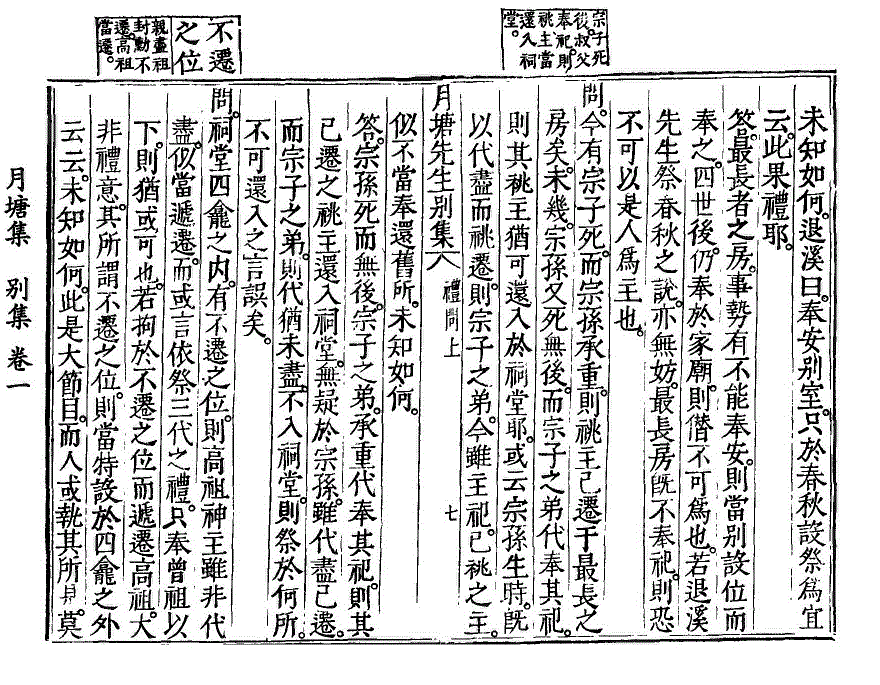 宗子死
後叔父
奉祀則
祧主當
還入祠
堂。
未知如何。退溪曰。奉安別室。只於春秋設祭爲宜
云。此果禮耶。
答。最長者之房。事勢有不能奉安。則當別設位而
奉之。四世後。仍奉於家廟。則僭不可爲也。若退溪
先生祭春秋之說。亦無妨。最長房旣不奉祀。則恐
不可以是人爲主也。
問。今有宗子死。而宗孫承重。則祧主已遷于最長之
房矣。未幾。宗孫又死無後。而宗子之弟代奉其祀。
則其祧主猶可還入於祠堂耶。或云宗孫生時。旣
以代盡而祧遷。則宗子之弟。今雖主祀。已祧之主。
月塘先生別集 禮問上 七
似不當奉還舊所。未知如何。
答。宗孫死而無後。宗子之弟。承重代奉其祀。則其
已遷之祧主還入祠堂。無疑於宗孫。雖代盡已遷。
而宗子之弟。則代猶未盡。不入祠堂。則祭於何所。
不可還入之言誤矣。
不遷
之位
親盡祖
封勳不
遷。高祖
當遷。
問。祠堂四龕之內。有不遷之位。則高祖神主雖非代
盡。似當遞遷。而或言依祭三代之禮。只奉曾祖以
下。則猶或可也。若拘於不遷之位而遞遷高祖。大
非禮意。其所謂不遷之位。則當特設於四龕之外
云云。未知如何。此是大節目。而人或執其所見。莫
月塘集 別集 卷一